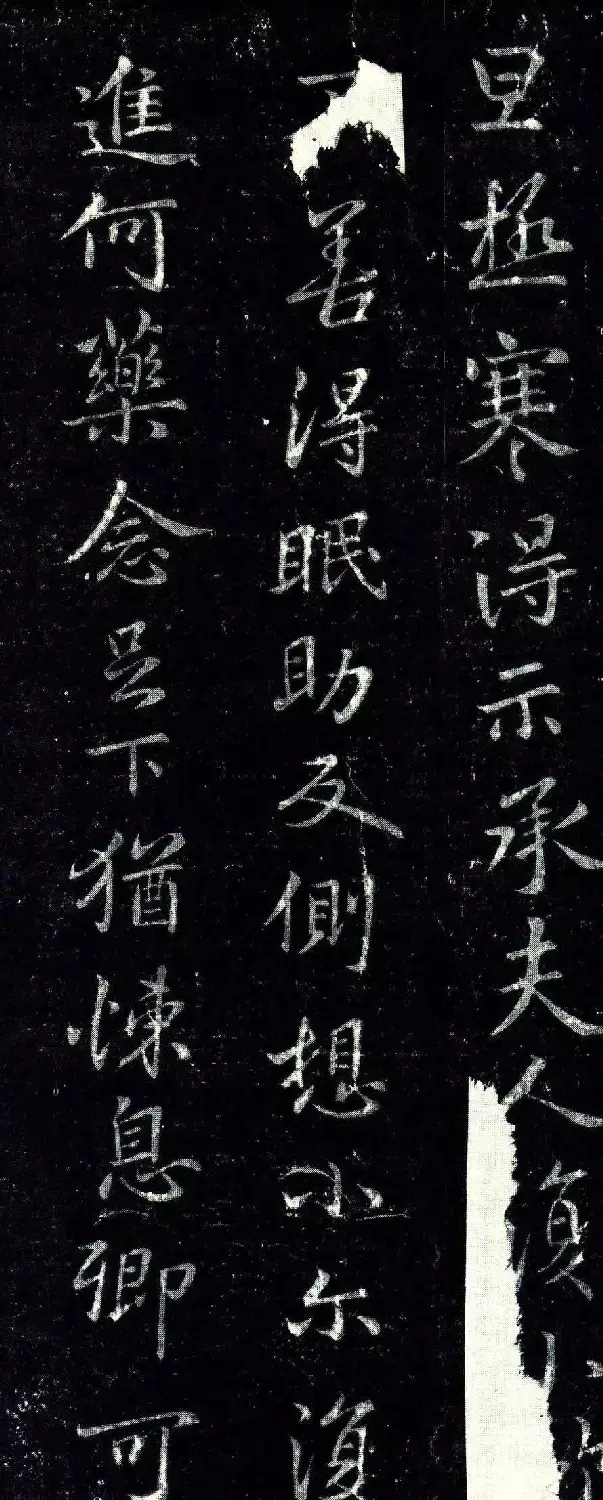 旦極寒得示承夫人復
善得眠助反側想小尓復
進何藥念足下猶悚息卿可